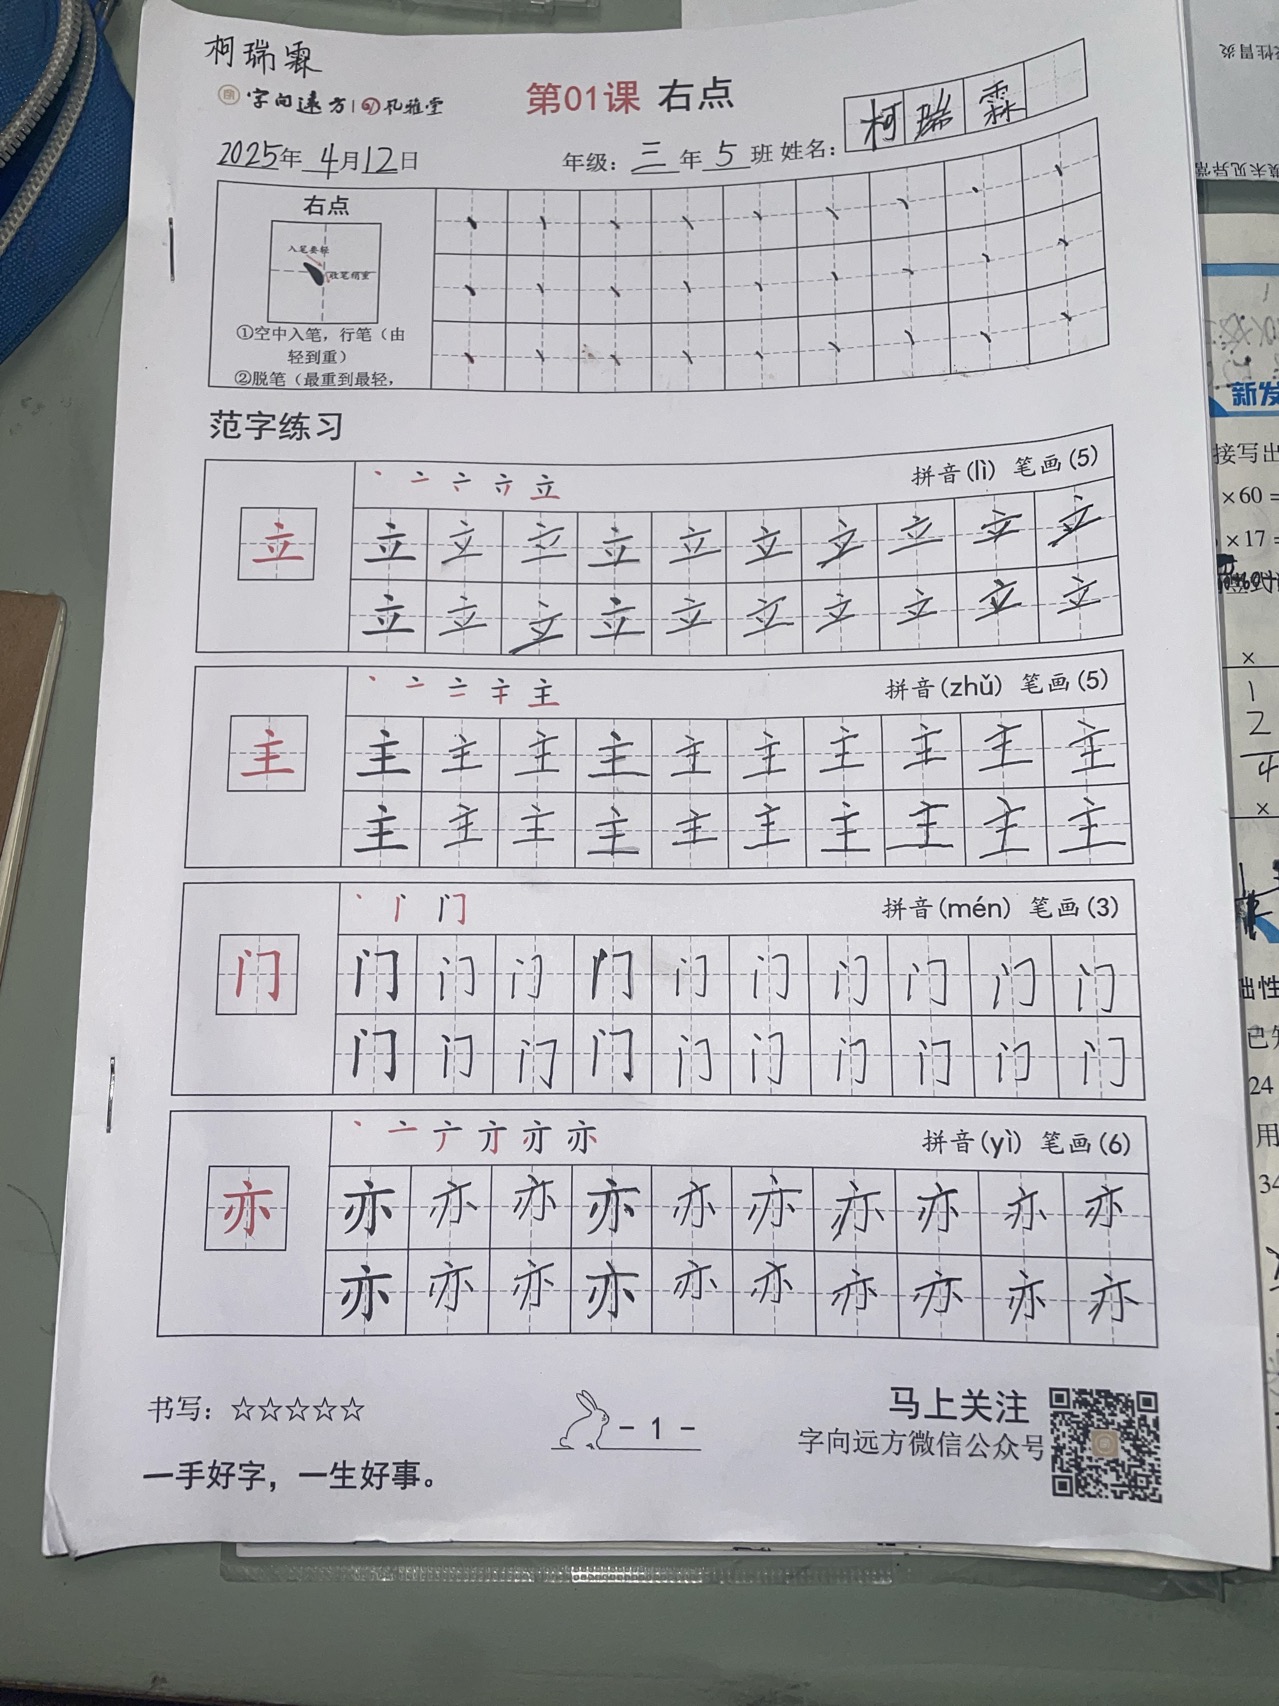 柯瑞霖
字向远方 | 孔雅堂
第01课 右点
柯瑞霖
2025年 4月12日
年级：三年5班 姓名：
右点
入笔要轻
收笔稍重
①空中入笔，行笔（由
轻到重）
②脱笔（最重到最轻，
范字练习
丶 亠 立
拼音(lì) 笔画(5)
立
立 立 立 立 立 立 立 立 立 立
立 立 立 立 立 立 立 立 立 立
丶 亠 主
拼音(zhǔ) 笔画(5)
主
主 主 主 主 主 主 主 主 主 主
主 主 主 主 主 主 主 主 主 主
丶 门
拼音(mén) 笔画(3)
门
门 门 门 门 门 门 门 门 门 门
门 门 门 门 门 门 门 门 门 门
丶 亠 亦
拼音(yì) 笔画(6)
亦
亦 亦 亦 亦 亦 亦 亦 亦 亦 亦
亦 亦 亦 亦 亦 亦 亦 亦 亦 亦
书写：☆☆☆☆☆
- 1 -
马上关注
字向远方微信公众号
一手好字，一生好事。
性胃炎
未见异常
新发
接写出
×60=
×17=
×
1
2
4
×
础性
已知
24
用
34